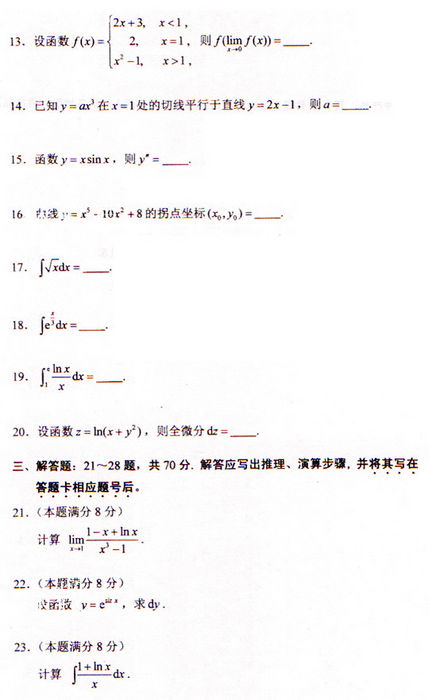 13. 设函数 f(x) = { 2x+3, x<1,
2, x=1, 则 f(lim_{x→0} f(x)) = ____.
x²−1, x>1,
14. 已知 y = ax³ 在 x=1 处的切线平行于直线 y = 2x−1，则 a = ____.
15. 函数 y = x sin x，则 y″ = ____.
16 曲线 y = x⁵ - 10x² + 8 的拐点坐标 (x₀, y₀) = ____.
17. ∫√x dx = ____.
18. ∫e^{x/3} dx = ____.
19. ∫₁^e (ln x / x) dx = ____.
20. 设函数 z = ln(x + y²)，则全微分 dz = ____.
三、解答题：21～28 题，共 70 分. 解答应写出推理、演算步骤, 并将其写在
答题卡相应题号后。
21.（本题满分 8 分）
计算 lim_{x→1} (1−x+ln x)/(x³−1).
22.（本题满分 8 分）
设函数 y = e^{sin x}，求 dy.
23.（本题满分 8 分）
计算 ∫ (1+ln x)/x dx.